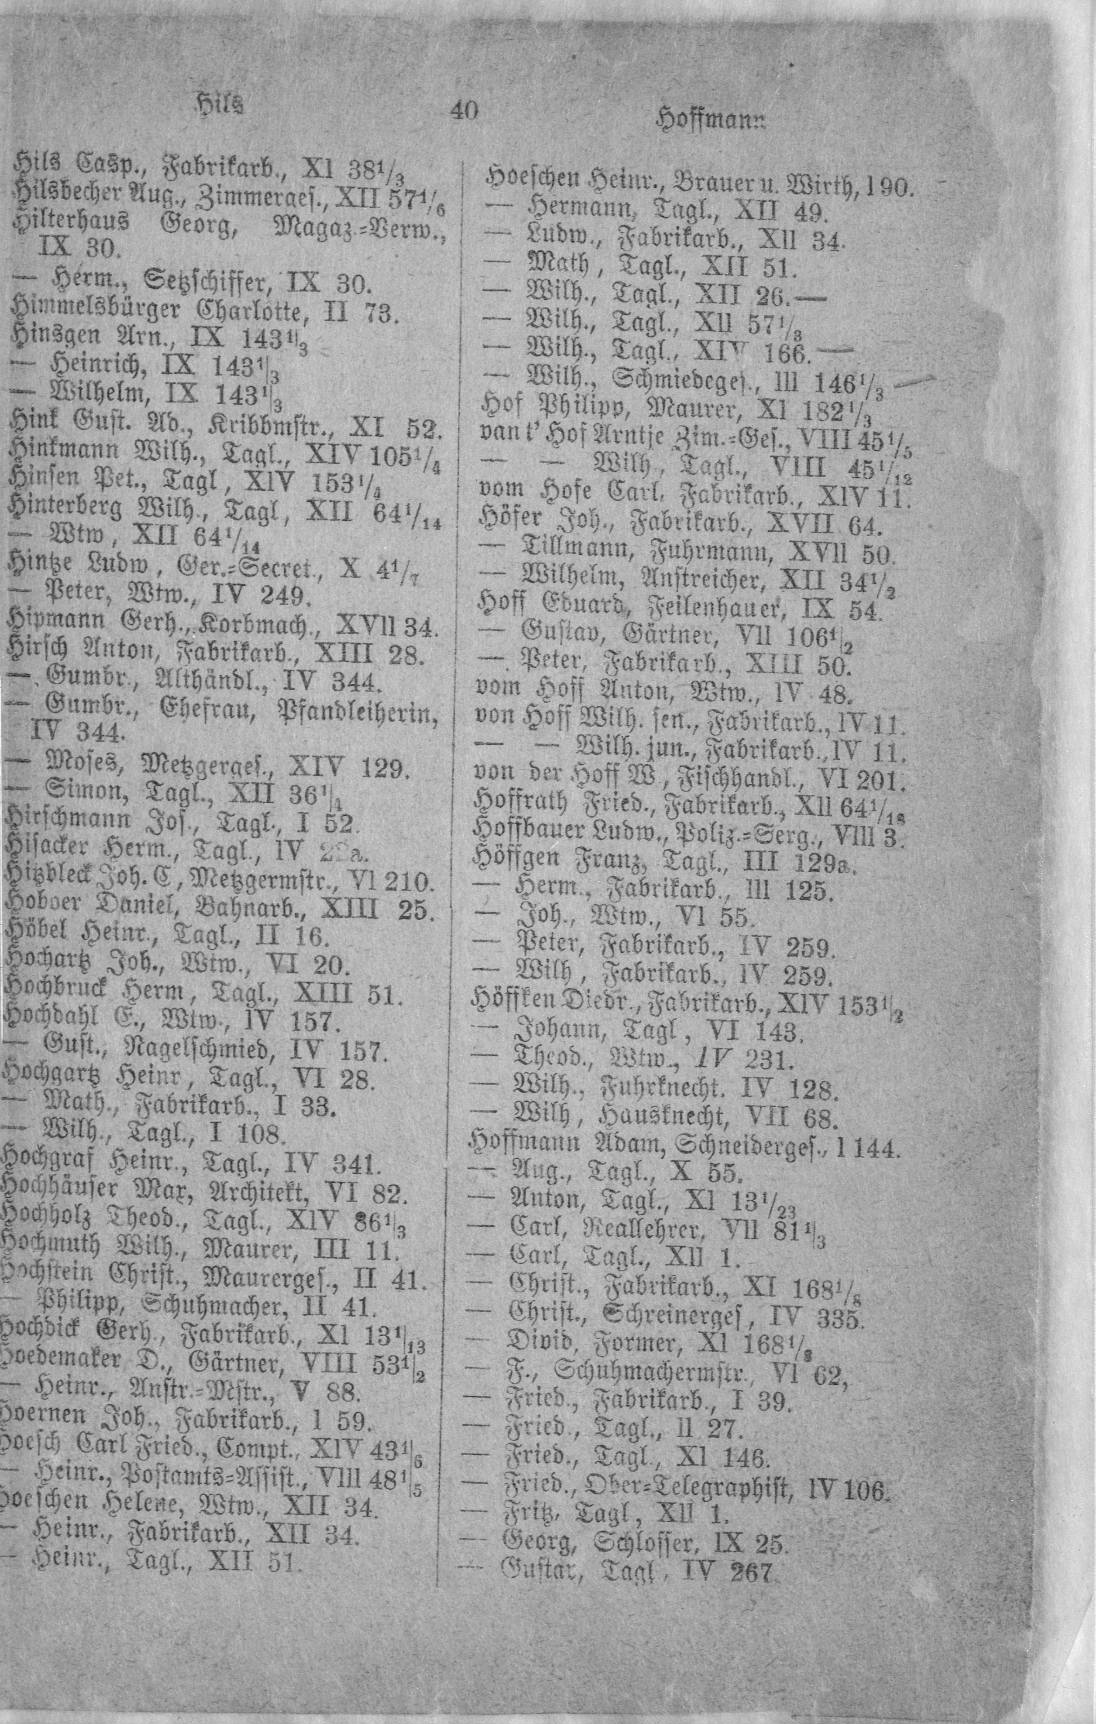 Hils
40
Hoffmann
Hils Casp., Fabrikarb., XI 38 1/3
Hilsbecher Aug., Zimmerges., XII 57 1/6
Hilterhaus Georg, Magaz.=Verw.,
IX 30.
— Herm., Setzschiffer, IX 30.
Himmelsbürger Charlotte, II 73.
Hinsgen Arn., IX 143 1/3
— Heinrich, IX 143 1/3
— Wilhelm, IX 143 1/3
Hink Gust. Ad., Kribbmstr., XI 52.
Hinkmann Wilh., Tagl., XIV 105 1/4
Hinsen Pet., Tagl, XIV 153 1/4
Hinterberg Wilh., Tagl, XII 64 1/14
— Wtw, XII 64 1/14
Hintze Ludw, Ger.=Secret., X 4 1/7
— Peter, Wtw., IV 249.
Hipmann Gerh., Korbmach., XVII 34.
Hirsch Anton, Fabrikarb., XIII 28.
— Gumbr., Althändl., IV 344.
— Gumbr., Ehefrau, Pfandleiherin,
IV 344.
— Moses, Metzgerges., XIV 129.
— Simon, Tagl., XII 36 1/4
Hirschmann Jos., Tagl., I 52.
Hisacker Herm., Tagl., IV
Hitzbleck Joh. C, Metzgermstr., VI 210.
Hoboer Daniel, Bahnarb., XIII 25.
Höbel Heinr., Tagl., II 16.
Hochartz Joh., Wtw., VI 20.
Hochbruck Herm, Tagl., XIII 51.
Hochdahl E., Wtw., IV 157.
— Gust., Nagelschmied, IV 157.
Hochgartz Heinr, Tagl., VI 28.
— Math., Fabrikarb., I 33.
— Wilh., Tagl., I 108.
Hochgraf Heinr., Tagl., IV 341.
Hochhäuser Max, Architekt, VI 82.
Hochholz Theod., Tagl., XIV 86 1/3
Hochmuth Wilh., Maurer, III 11.
Hochstein Christ., Maurerges., II 41.
— Philipp, Schuhmacher, II 41.
Hochdick Gerh., Fabrikarb., XI 13 1/13
Hoedemaker D., Gärtner, VIII 53 1/2
— Heinr., Anstr.=Mstr., V 88.
Hoernen Joh., Fabrikarb., I 59.
Hoesch Carl Fried., Compt., XIV 43 1/6
— Heinr., Postamts=Assist., VIII 48 1/5
Hoeschen Helene, Wtw., XII 34.
— Heinr., Fabrikarb., XII 34.
— Heinr., Tagl., XII 51.
Hoeschen Heinr., Brauer u. Wirth, I 90.
— Hermann, Tagl., XII 49.
— Ludw., Fabrikarb., XII 34.
— Math, Tagl., XII 51.
— Wilh., Tagl., XII 26.
— Wilh., Tagl., XII 57 1/3
— Wilh., Tagl., XIV 166.
— Wilh., Schmiedeges., III 146 1/3
Hof Philipp, Maurer, XI 182 1/3
van t' Hof Arntje Zim.=Ges., VIII 45 1/5
— — Wilh, Tagl., VIII 45 1/12
vom Hofe Carl, Fabrikarb., XIV 11.
Höfer Joh., Fabrikarb., XVII 64.
— Tillmann, Fuhrmann, XVII 50.
— Wilhelm, Anstreicher, XII 34 1/2
Hoff Eduard, Feilenhauer, IX 54.
— Gustav, Gärtner, VII 106 1/2
— Peter, Fabrikarb., XIII 50.
vom Hoff Anton, Wtw., IV 48.
von Hoff Wilh. sen., Fabrikarb., IV 11.
— — Wilh. jun., Fabrikarb., IV 11.
von der Hoff W, Fischhandl., VI 201.
Hoffrath Fried., Fabrikarb., XII 64 1/18
Hoffbauer Ludw., Poliz.=Serg., VIII 3.
Höffgen Franz, Tagl., III 129a.
— Herm., Fabrikarb., III 125.
— Joh., Wtw., VI 55.
— Peter, Fabrikarb., IV 259.
— Wilh, Fabrikarb., IV 259.
Höffken Diedr., Fabrikarb., XIV 153 1/2
— Johann, Tagl, VI 143.
— Theod., Wtw., IV 231.
— Wilh., Fuhrknecht. IV 128.
— Wilh, Hausknecht, VII 68.
Hoffmann Adam, Schneiderges., I 144.
— Aug., Tagl., X 55.
— Anton, Tagl., XI 13 1/23
— Carl, Reallehrer, VII 81 1/3
— Carl, Tagl., XII 1.
— Christ., Fabrikarb., XI 168 1/8
— Christ., Schreinerges, IV 335.
— Divid, Former, XI 168 1/8
— F., Schuhmachermstr., VI 62,
— Fried., Fabrikarb., I 39.
— Fried., Tagl., II 27.
— Fried., Tagl., XI 146.
— Fried., Ober=Telegraphist, IV 106.
— Fritz, Tagl, XII 1.
— Georg, Schlosser, IX 25.
— Gustav, Tagl, IV 267.